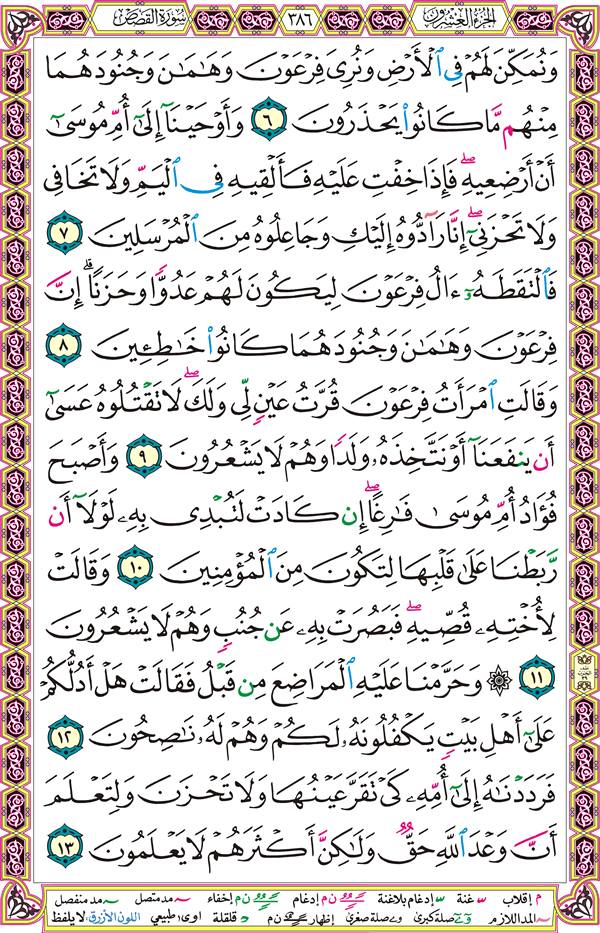 الجزء العشرون
٣٨٦
سورة القصص
وَنُمَكِّنَ لَهُمْ فِي ٱلْأَرْضِ وَنُرِيَ فِرْعَوْنَ وَهَٰمَٰنَ وَجُنُودَهُمَا
مِنْهُم مَّا كَانُوا۟ يَحْذَرُونَ ٦ وَأَوْحَيْنَآ إِلَىٰٓ أُمِّ مُوسَىٰٓ
أَنْ أَرْضِعِيهِ ۖ فَإِذَا خِفْتِ عَلَيْهِ فَأَلْقِيهِ فِي ٱلْيَمِّ وَلَا تَخَافِي
وَلَا تَحْزَنِىٓ ۖ إِنَّا رَآدُّوهُ إِلَيْكِ وَجَاعِلُوهُ مِنَ ٱلْمُرْسَلِينَ ٧
فَٱلْتَقَطَهُۥٓ ءَالُ فِرْعَوْنَ لِيَكُونَ لَهُمْ عَدُوًّا وَحَزَنًا ۗ إِنَّ
فِرْعَوْنَ وَهَٰمَٰنَ وَجُنُودَهُمَا كَانُوا۟ خَٰطِـِٔينَ ٨
وَقَالَتِ ٱمْرَأَتُ فِرْعَوْنَ قُرَّتُ عَيْنٍ لِّي وَلَكَ ۖ لَا تَقْتُلُوهُ عَسَىٰٓ
أَن يَنفَعَنَآ أَوْ نَتَّخِذَهُۥ وَلَدًا وَهُمْ لَا يَشْعُرُونَ ٩ وَأَصْبَحَ
فُؤَادُ أُمِّ مُوسَىٰ فَٰرِغًا ۖ إِن كَادَتْ لَتُبْدِي بِهِۦ لَوْلَآ أَن
رَّبَطْنَا عَلَىٰ قَلْبِهَا لِتَكُونَ مِنَ ٱلْمُؤْمِنِينَ ١٠ وَقَالَتْ
لِأُخْتِهِۦ قُصِّيهِ ۖ فَبَصُرَتْ بِهِۦ عَن جُنُبٍ وَهُمْ لَا يَشْعُرُونَ
١١ ۞ وَحَرَّمْنَا عَلَيْهِ ٱلْمَرَاضِعَ مِن قَبْلُ فَقَالَتْ هَلْ أَدُلُّكُمْ
عَلَىٰٓ أَهْلِ بَيْتٍ يَكْفُلُونَهُۥ لَكُمْ وَهُمْ لَهُۥ نَٰصِحُونَ ١٢
فَرَدَدْنَٰهُ إِلَىٰٓ أُمِّهِۦ كَيْ تَقَرَّ عَيْنُهَا وَلَا تَحْزَنَ وَلِتَعْلَمَ
أَنَّ وَعْدَ ٱللَّهِ حَقٌّ وَلَٰكِنَّ أَكْثَرَهُمْ لَا يَعْلَمُونَ ١٣
م إقلاب غنة إدغام بلاغنة ن م إدغام ن م إخفاء مد متصل مد منفصل
المد اللازم صلة كبرى صلة صغرى إظهار ن م قلقلة اوى طبيعي اللون الأزرق: لا يلفظ